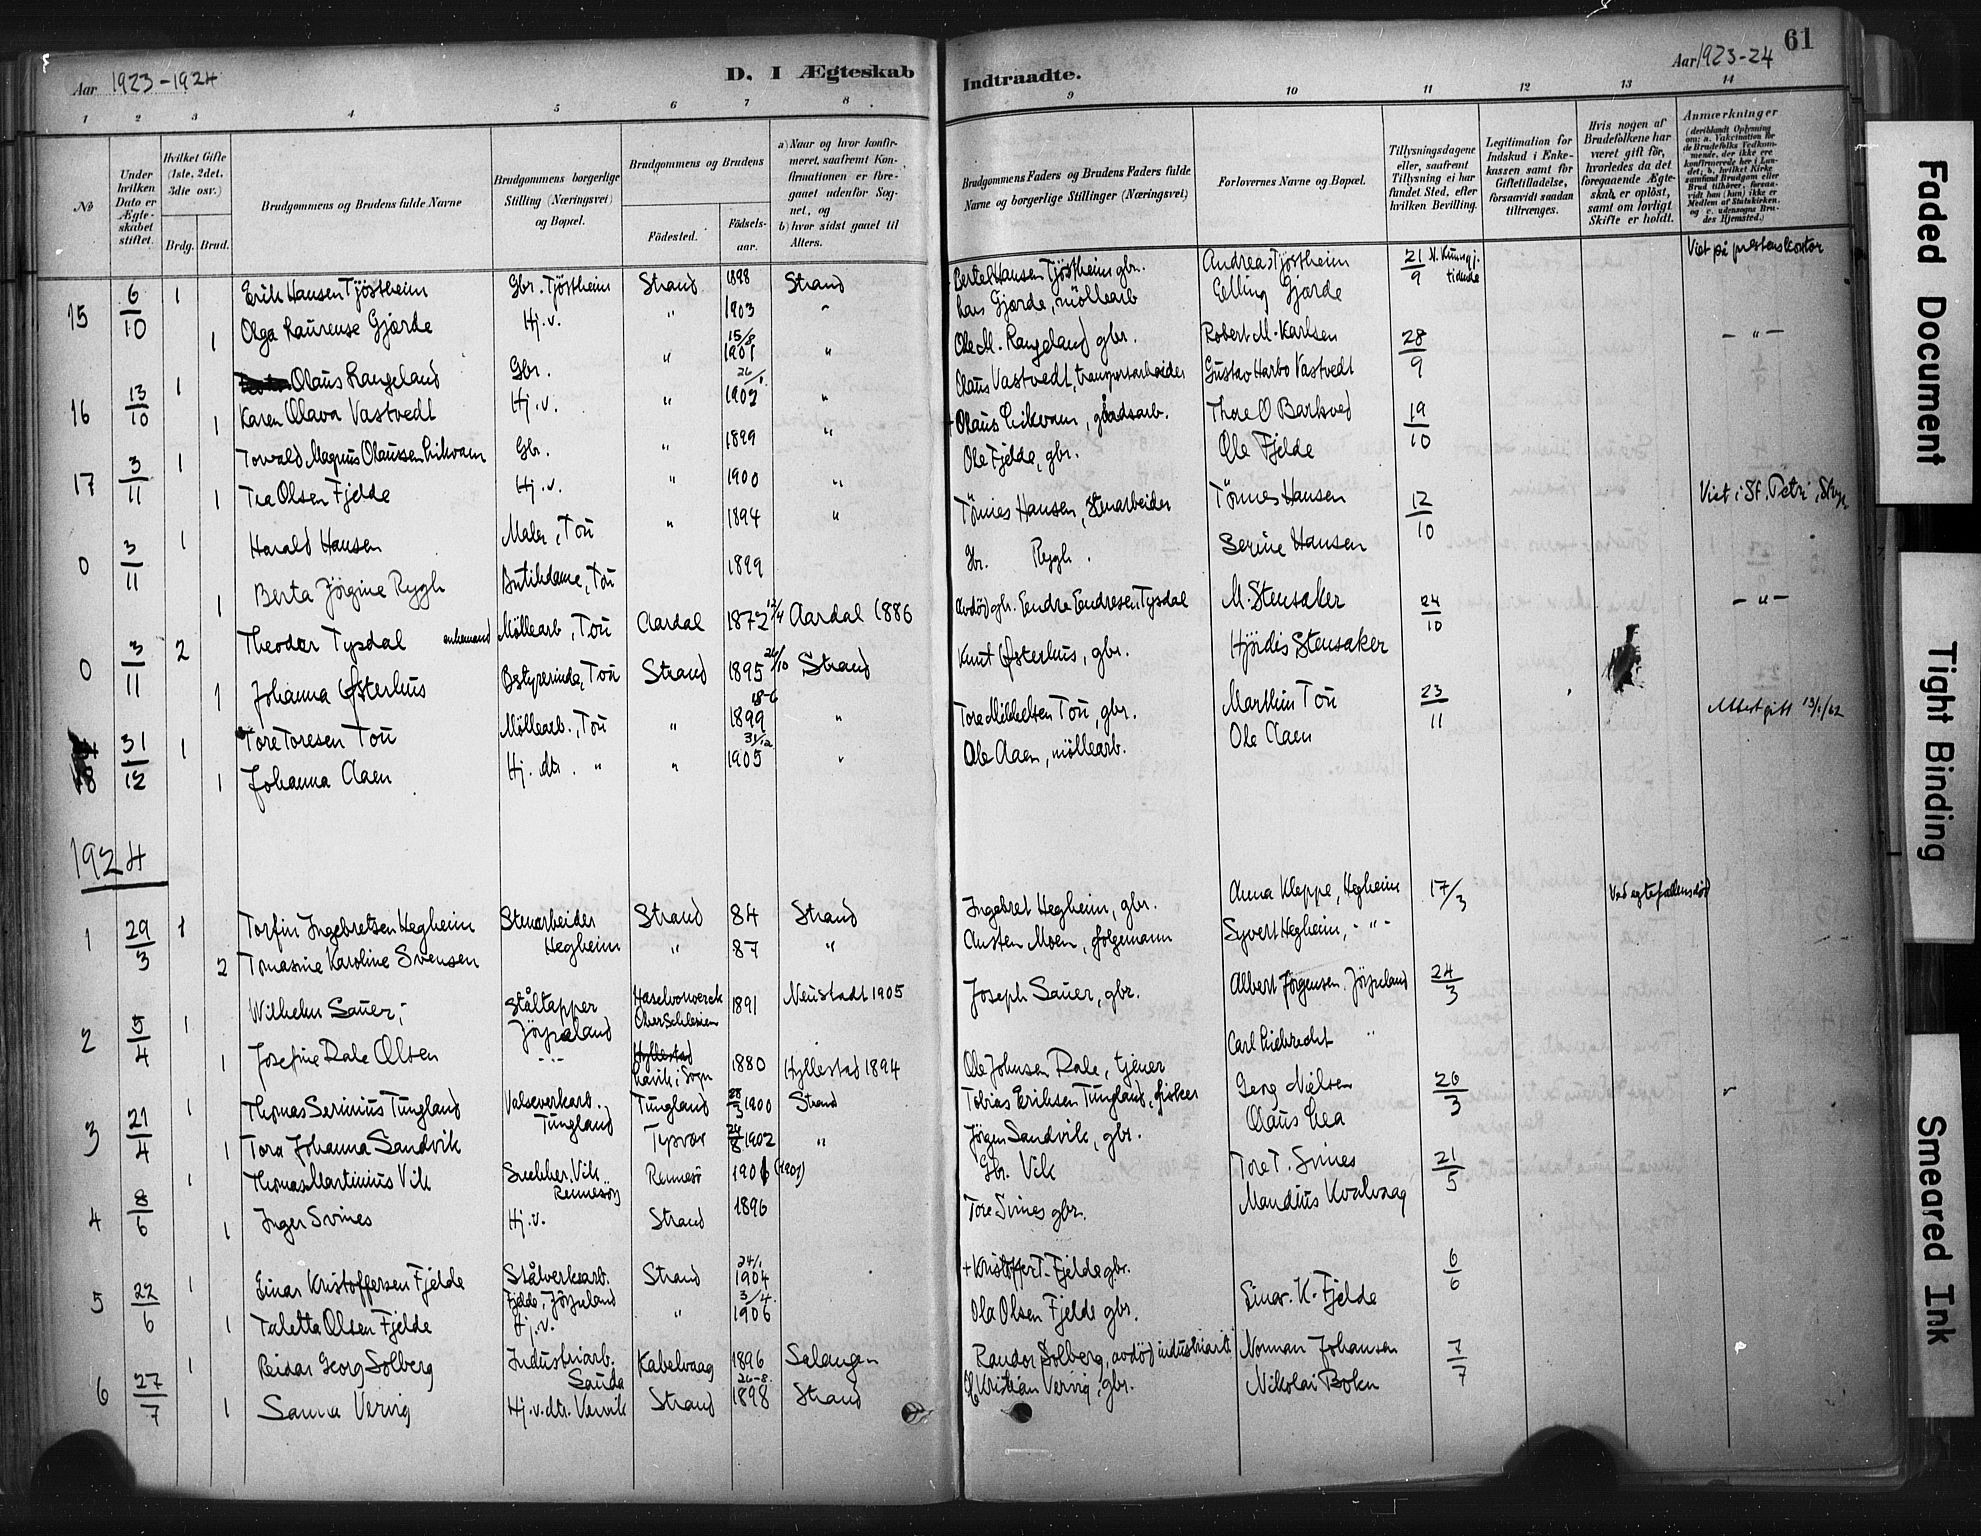 Aar 1923-1924
D. I Ægteskab
Indtraadte.
Aar 1923-24
61
1 2 3 4 5 6 7 8 9 10 11 12 13 14
No
Under hvilken Dato er Ægteskabet stiftet.
Hvilket Gifte (1ste, 2det, 3die osv.)
Brdg. Brud.
Brudgommens og Brudens fulde Navne
Brudgommens borgerlige Stilling (Næringsvei) og Bopæl.
Brudgommens og Brudens
Födested.
Födselsaar.
a) Naar og hvor konfirmeret, saafremt Konfirmationen er foregaaet udenfor Sognet, og
b) hvor sidst gaaet til Alters.
Brudgommens Faders og Brudens Faders fulde Navne og borgerlige Stillinger (Næringsvei)
Forlovernes Navne og Bopæl.
Tillysningsdagene eller, saafremt Tillysning ei har fundet Sted, efter hvilken Bevilling.
Legitimation for Indskud i Enkekassen samt for Giftetilladelse, forsaavidt saadan tiltrænges.
Hvis nogen af Brudefolkene har været gift før, hvorledes da det foregaaende Ægteskab er oplöst, samt om lovligt Skifte er holdt.
Anmærkninger
(deriblandt Oplysning om: a. Vakcination for de Brudefolks Vedkommende, der ikke ere konfirmerede her i Landet; b. hvilket Kirkesamfund Brudgom eller Brud tilhörer, forsaavidt han (hun) ikke er Medlem af Statskirken, og c. udensogns Brudes Hjemsted.)
15 6/10 1 Erik Hansen Tjöstheim Gbr. Tjöstheim Strand 1898 Strand Bertel Hansen Tjöstheim gbr. Andreas Tjöstheim 21/9 N. Kunngj. tidende Viet på prestens kontor
1 Olga Laurense Gjerde Hj.v. " 1903 " Lars Gjerde, möllearb Elling Gjerde
16 13/10 1 Olaus Rangeland Gbr. " 15/8 1901 " Ole M. Rangeland gbr. Robert M. Karlsen 28/9 - " -
1 Karen Olava Vastvedt Hj.v. " 26/1 1902 " Olaus Vastvedt, transportarbeider Gustav Harbo Vastvedt
17 3/11 1 Torvald Magnus Olaussen Leikvam Gbr. " 1899 " + Olaus Leikvam, gårdsarb. Thore O Barkved 19/10
1 Tea Olsen Fjelde Hj.v. " 1900 " Ole Fjelde, gbr. Ole Fjelde
0 3/11 1 Harald Hansen Maler, Tou " 1894 " Tönnes Hansen, Stenarbeider Tönnes Hansen 12/10 Viet i St. Petri,
1 Berta Jörgine Rygh Butikdame, Tou 1899 Gbr. Rygh. Serine Hansen
0 3/11 2 Theodor Tysdal enkemand Möllearb, Tou Aardal 1872 12/4 Aardal 1886 Avdöd gbr. Endre Endresen Tysdal M. Stensaker 24/10 - " -
1 Johanna Østerhus Bestyrerinde, Tou Strand 1895 26/10 Strand Knut Østerhus, gbr. Hjördis Stensaker
18 31/12 1 Tore Toresen Tou Möllearb., Tou " 18-6 1899 " Tore Mikkelsen Tou, gbr. Marthin Tou 23/11 Attest gitt 13/1/62
1 Johanna Aaen Hj. dtr. " " 31/12 1905 " Ole Aaen, möllearb. Ole Aaen
1924
1 29/3 1 Torfin Ingebretsen Hegheim Stenarbeider Hegheim Strand 84 Strand Ingebret Hegheim, gbr. Anna Kleppe, Hegheim 17/3 Ved egtefellens död
2 Tomasine Karoline Svensen " 87 " Austen Moen, folgemann Syvert Hegheim, - " -
2 5/4 1 Wilhelm Sauer; Ståltapper Jörpeland Haselvorwerck Ober Schlesien 1891 Neustadt 1905 Joseph Sauer, gbr. Albert Jörgensen. Jörpeland 24/3
1 Josefine Dale Olsen - " - Hyllestad Lavik i Sogn 1880 Hyllestad 1894 Ole Johnsen Dale, tjener Carl Liebrecht "
3 21/4 1 Thomas Serinius Tungland Valseverkarb. Tungland Tungland 28/3 1900 Strand Tobias Eriksen Tungland, fisker Georg Nielsen 26/3 "
1 Tora Johanna Sandvik Tysvær 24/8 1902 " Jörgen Sandvik, gbr. Olaus Lea
4 8/6 1 Thomas Martinius Vik Snekker. Vik Rennesöy Rennesö 1901 (1901) Gbr. Vik Tore T. Svines 21/5
1 Inger Svines Hj.v. Strand 1896 Tore Svines gbr. Mandius Kvalvaag
5 22/6 1 Einar Kristoffersen Fjelde Stålverksarb. Fjelde, Jörpeland Strand 24/1 1904 + Kristoffer T. Fjelde gbr. 6/6
1 Taletta Olsen Fjelde Hj.v. " 3/4 1906 Ola Olsen Fjelde gbr. Einar. K. Fjelde
6 27/7 1 Reidar Georg Solberg Industriarb. Sauda Kabelvaag 1896 Salangen Randor Solberg, avdöd industriarb. Norman Johansen 7/7
1 Sanna Vervig Hj.v. dtr. Vervik Strand 26-8. 1898 Strand Kristian Vervig, gbr. Nikolai Bokn
Faded Document
Tight Binding
Smeared Ink